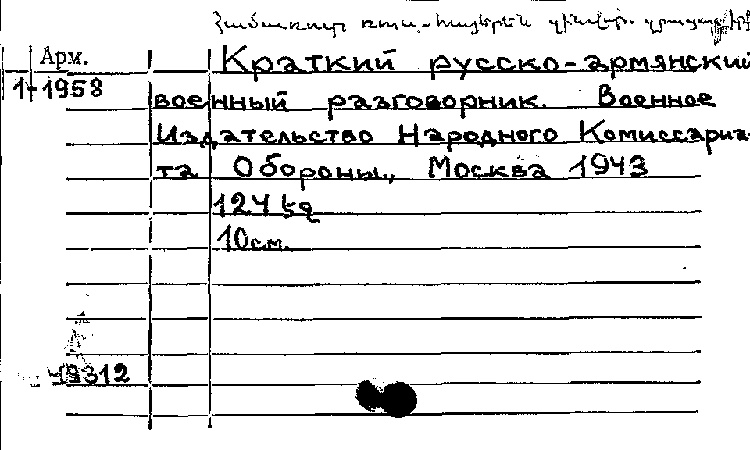 Համառոտ ռուս-հայերեն զինվոր. զրուցարան
Арм.
1-1958
Краткий русско-армянский
военный разговорник. Военное
Издательство Народного Комиссариа-
та Обороны., Москва 1943
124 էջ
10см.
49312